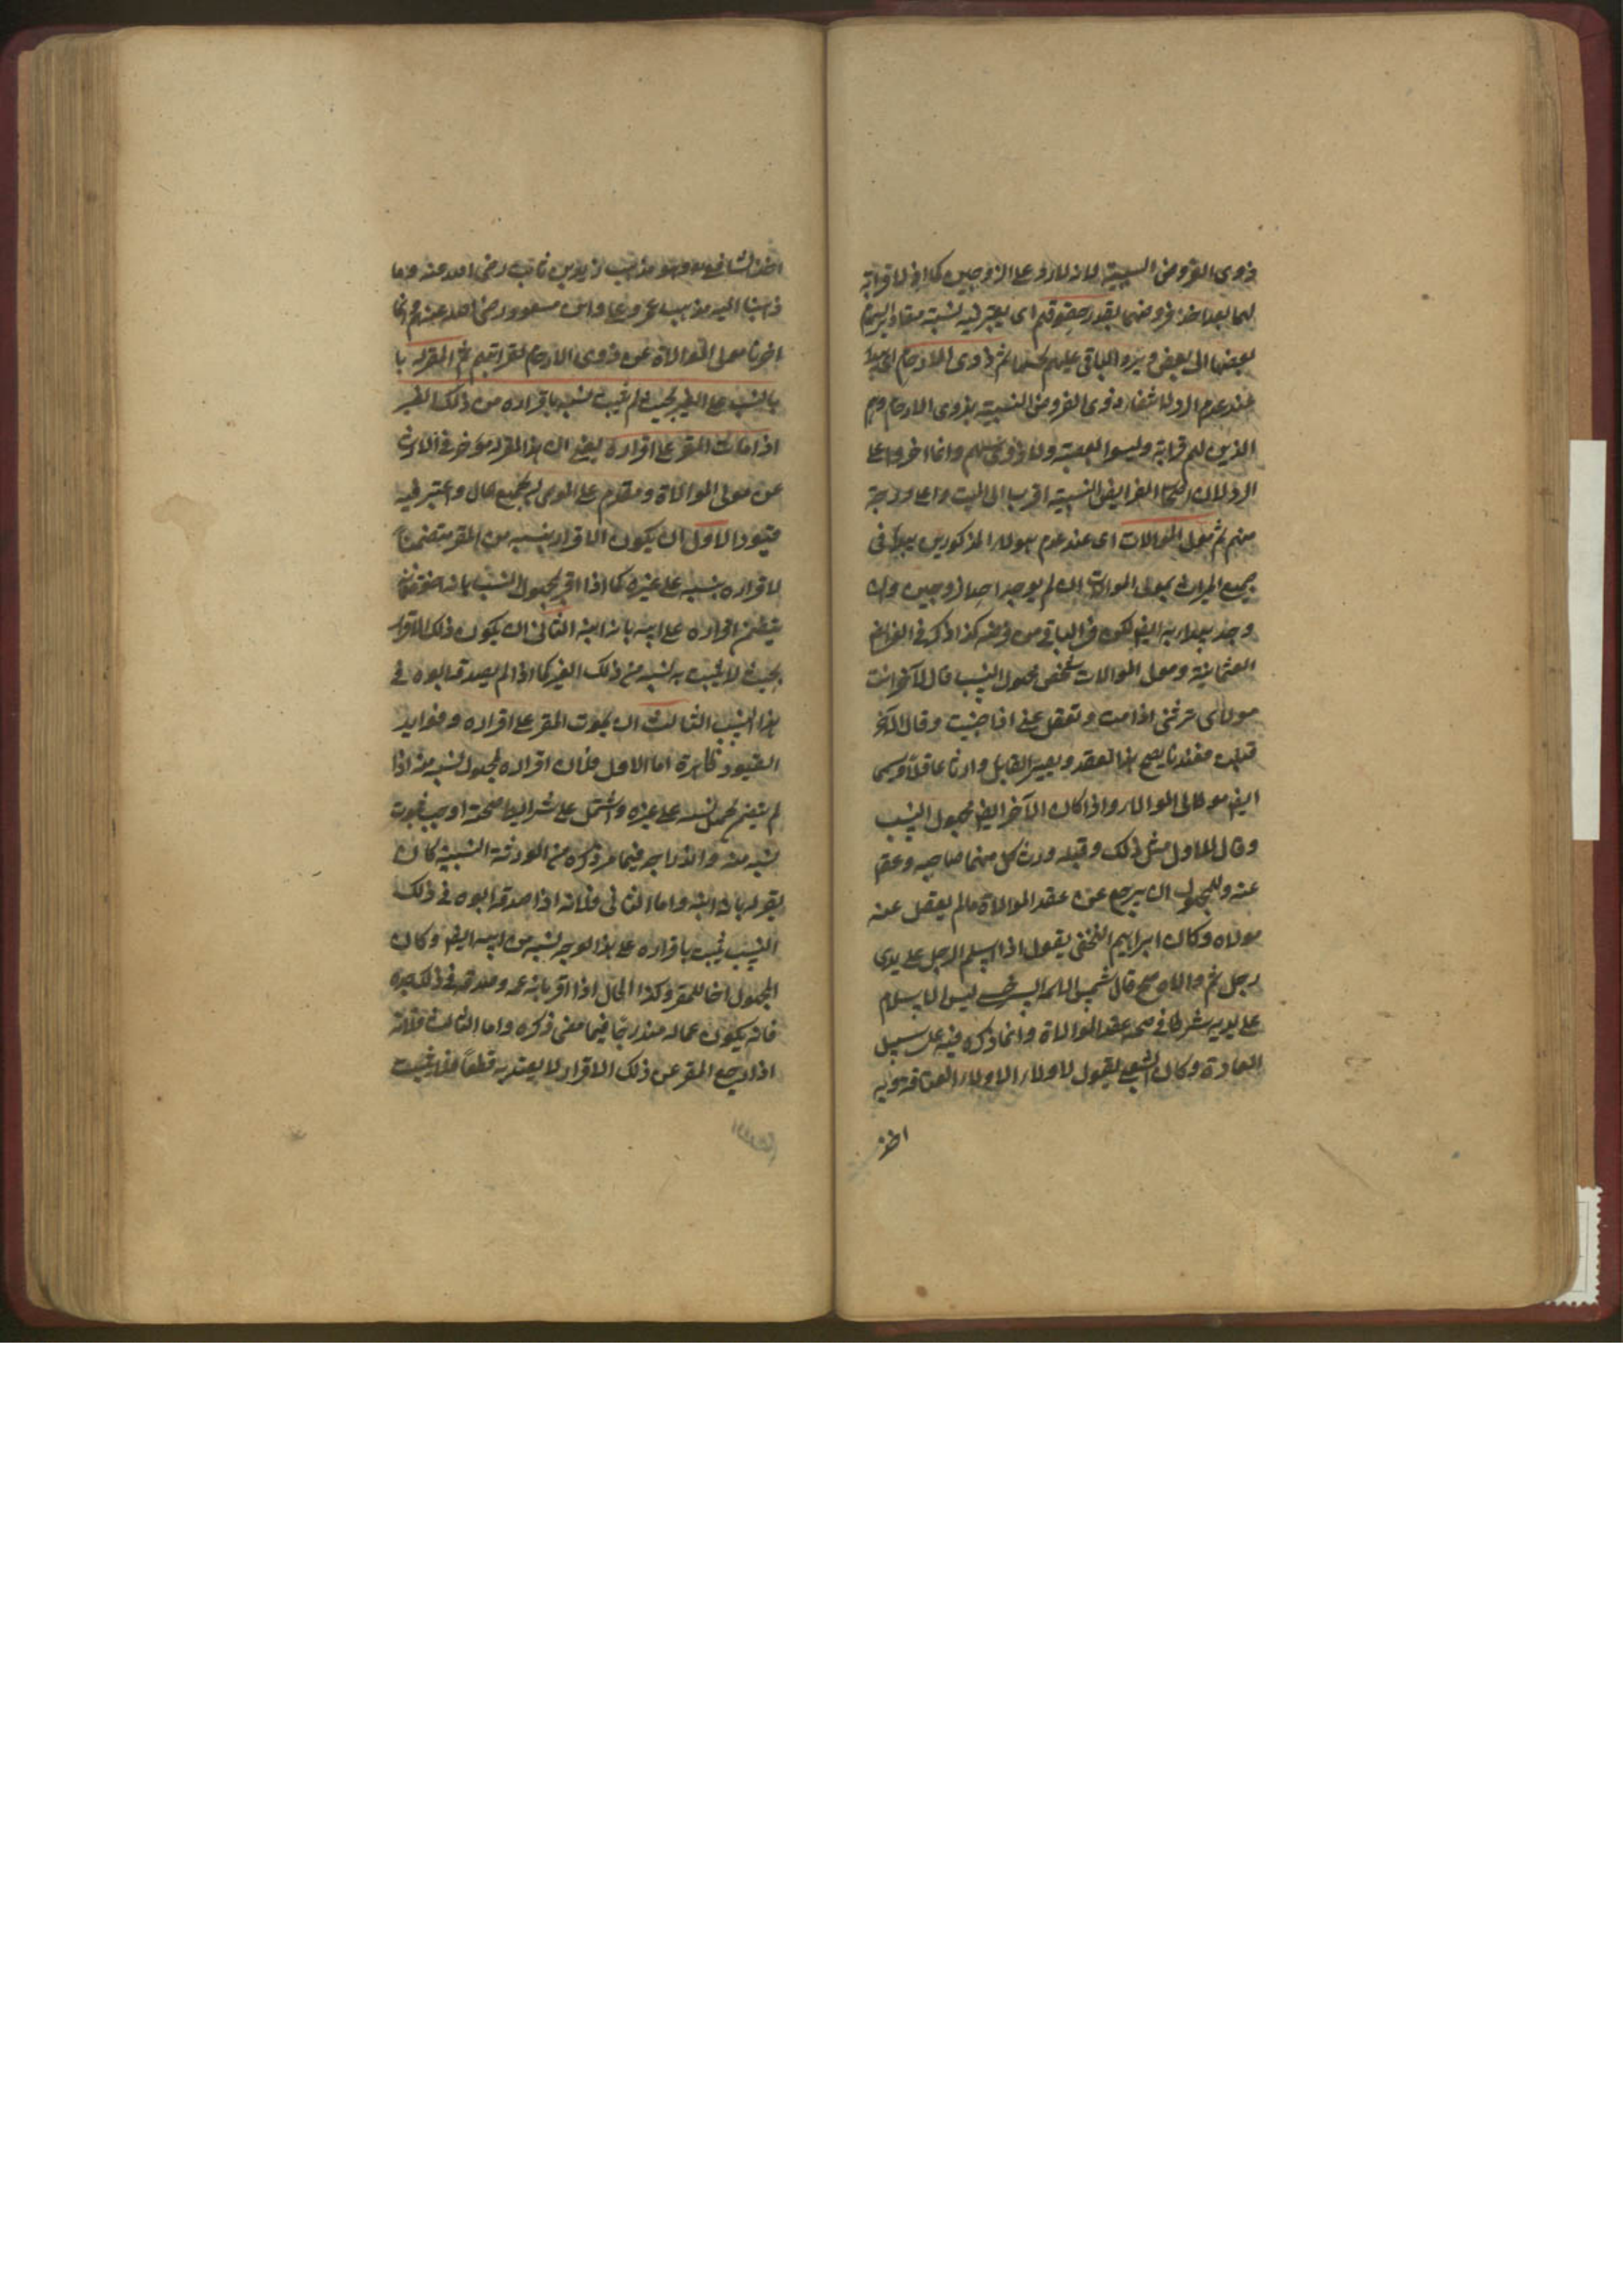 ذوى الفروض النسبية لانه لا رد على الزوجين كما اذ لا قرابة
لهما بعد اخذ فروضهما بقدر حقوقهم اى يعتبر فيه نسبة مقادير السهام
بعضها الى بعض ويرد الباقى عليهم كسهامهم ثم ذوى الارحام اى يبدأ
عند عدم الرد لانتفاء ذوى الفروض النسبية بذوى الارحام وهم
الذين لهم قرابة وليسوا بعصبة ولا ذوى سهم وانما اخروا عن
الرد لان اصحاب الفرايض النسبية اقرب الى الميت واعلى درجة
منهم ثم مولى الموالات اى عند عدم هولاء المذكورين يبدأ فى
جميع الميراث بمولى الموالات ان لم يوجد احد الزوجين وان
وجد يبدأ به ايضا لكون فى الباقى من فرضه كذا ذكر فى الفرائض
العثمانية ومولى الموالات شخص مجهول النسب قال لآخر انت
مولاى ترثنى اذا مت وتعقل عنى اذا جنيت وقال الآخر
قبلت فعندنا يصح هذا العقد ويصير القابل وارثا عاقلا ويسمى
ايضا مولى الموالات واذا كان الآخر ايضا مجهول النسب
وقال للاول مثل ذلك وقبله ورث كل منهما صاحبه وعقل
عنه وللمجهول ان يرجع عن عقد الموالاة مالم يعقل عنه
مولاه وكان ابراهيم النخعى يقول اذا اسلم الرجل على يدى
رجل ثم والاه صح قال شمس الائمة السرخسى ليس الاسلام
على يديه شرطا فى صحة عقد الموالاة وانما ذكره فيه على سبيل
العادة وكان الشعبى يقول لا ولاء الا ولاء العتاقة وبه
اخذ
اخذ الشافعى وهو مذهب زيد بن ثابت رضى الله عنه وما
ذهبنا اليه مذهب عمر وعلى وابن مسعود رضى الله عنهم وانما
اخرنا مولى الموالاة عن ذوى الارحام لقرابتهم ثم المقر له با
بالنسب على الغير بحيث لم يثبت نسبه باقراره من ذلك الغير
اذا مات المقر على اقراره يعنى ان هذا المقر له مؤخر فى الارث
عن مولى الموالاة ومقدم على الموصى له بجميع المال واعتبر فيه
قيودا الاول ان يكون الاقرار بنسبه من المقر متضمنا
لاقراره بنسبه على غيره كما اذا اقر لمجهول النسب بانه اخوه فانه
يتضمن اقراره على ابيه بانه ابنه الثانى ان يكون ذلك الاقرار
بحيث لا يثبت به نسبه من ذلك الغير كما اذا لم يصدقه ابوه فى
هذا النسب الثالث ان يموت المقر على اقراره وفوايد
القيود ظاهرة اما الاول فلان اقراره لمجهول نسبه منه اذا
لم يتضمن تحميل نسبه على غيره واشتمل على شرايط صحته اوجب ثبوت
نسبه منه واندراجه فيما مر ذكره من الورثة النسبية كان
يقر له بانه ابنه واما الثانى فلانه اذا صدقه ابوه فى ذلك
النسب ثبت باقراره على هذا الوجه نسبه من ابيه ايضا وكان
المجهول اخا للمقر وكذا الحال اذا اقر بانه عمه وصدقه فى ذلك جده
فانه يكون عما له مندرجا فيما مضى ذكره واما الثالث فلانه
اذا رجع المقر عن ذلك الاقرار لا يعتد به قطعا فلا يثبت